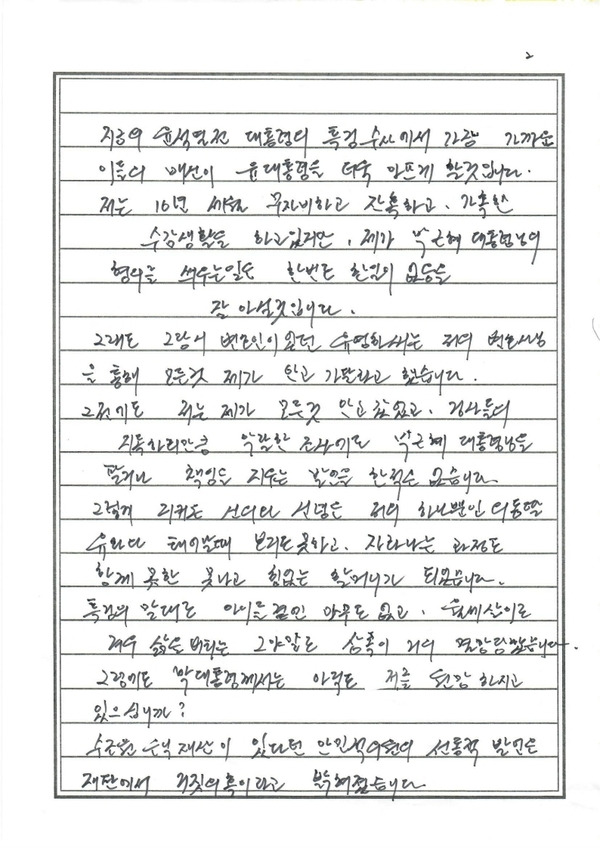 2
지금의 윤석열전 대통령의 특검 수사에서 가장 가까운
이들의 배신이 윤대통령을 더욱 아프게 할것입니다.
저는 10년 세월 무자비하고 잔혹하고, 가혹한
수감생활을 하고있지만, 제가 박근혜 대통령님의
혐의를 씌우는일은 한번도 한일이 없음을
잘 아실것입니다.
그래도 그당시 변호인이 였던 유영하 는 저의 변호사님
을 통해 모든것 제가 안고 가달라고 했습니다.
그전에도 저는 제가 모든것 안고 갔었고, 검사들의
지독하리만큼 악랄한 조사에도 박근혜 대통령님을
팔거나 책임을 지우는 발언을 한적은 없습니다
그렇게 지켜온 신의와 신념은 저의 하나뿐인 외동딸
유라와 태어날때 보지도 못하고, 자라나는 과정도
함께 못한 못나고 힘없는 할머니가 되었습니다.
특검의 말대로 아이들 곁엔 아무도 없고, 월세살이로
겨우 삶을 버티는 그야말로 삼족이 거의 멸망당했습니다.
그럼에도 박대통령께서는 아직도 저를 원망 하시고
있으십니까?
수조원 은닉 재산이 있다던 안민석의원의 선동적 발언은
재판에서 거짓의혹이라고 밝혀졌습니다